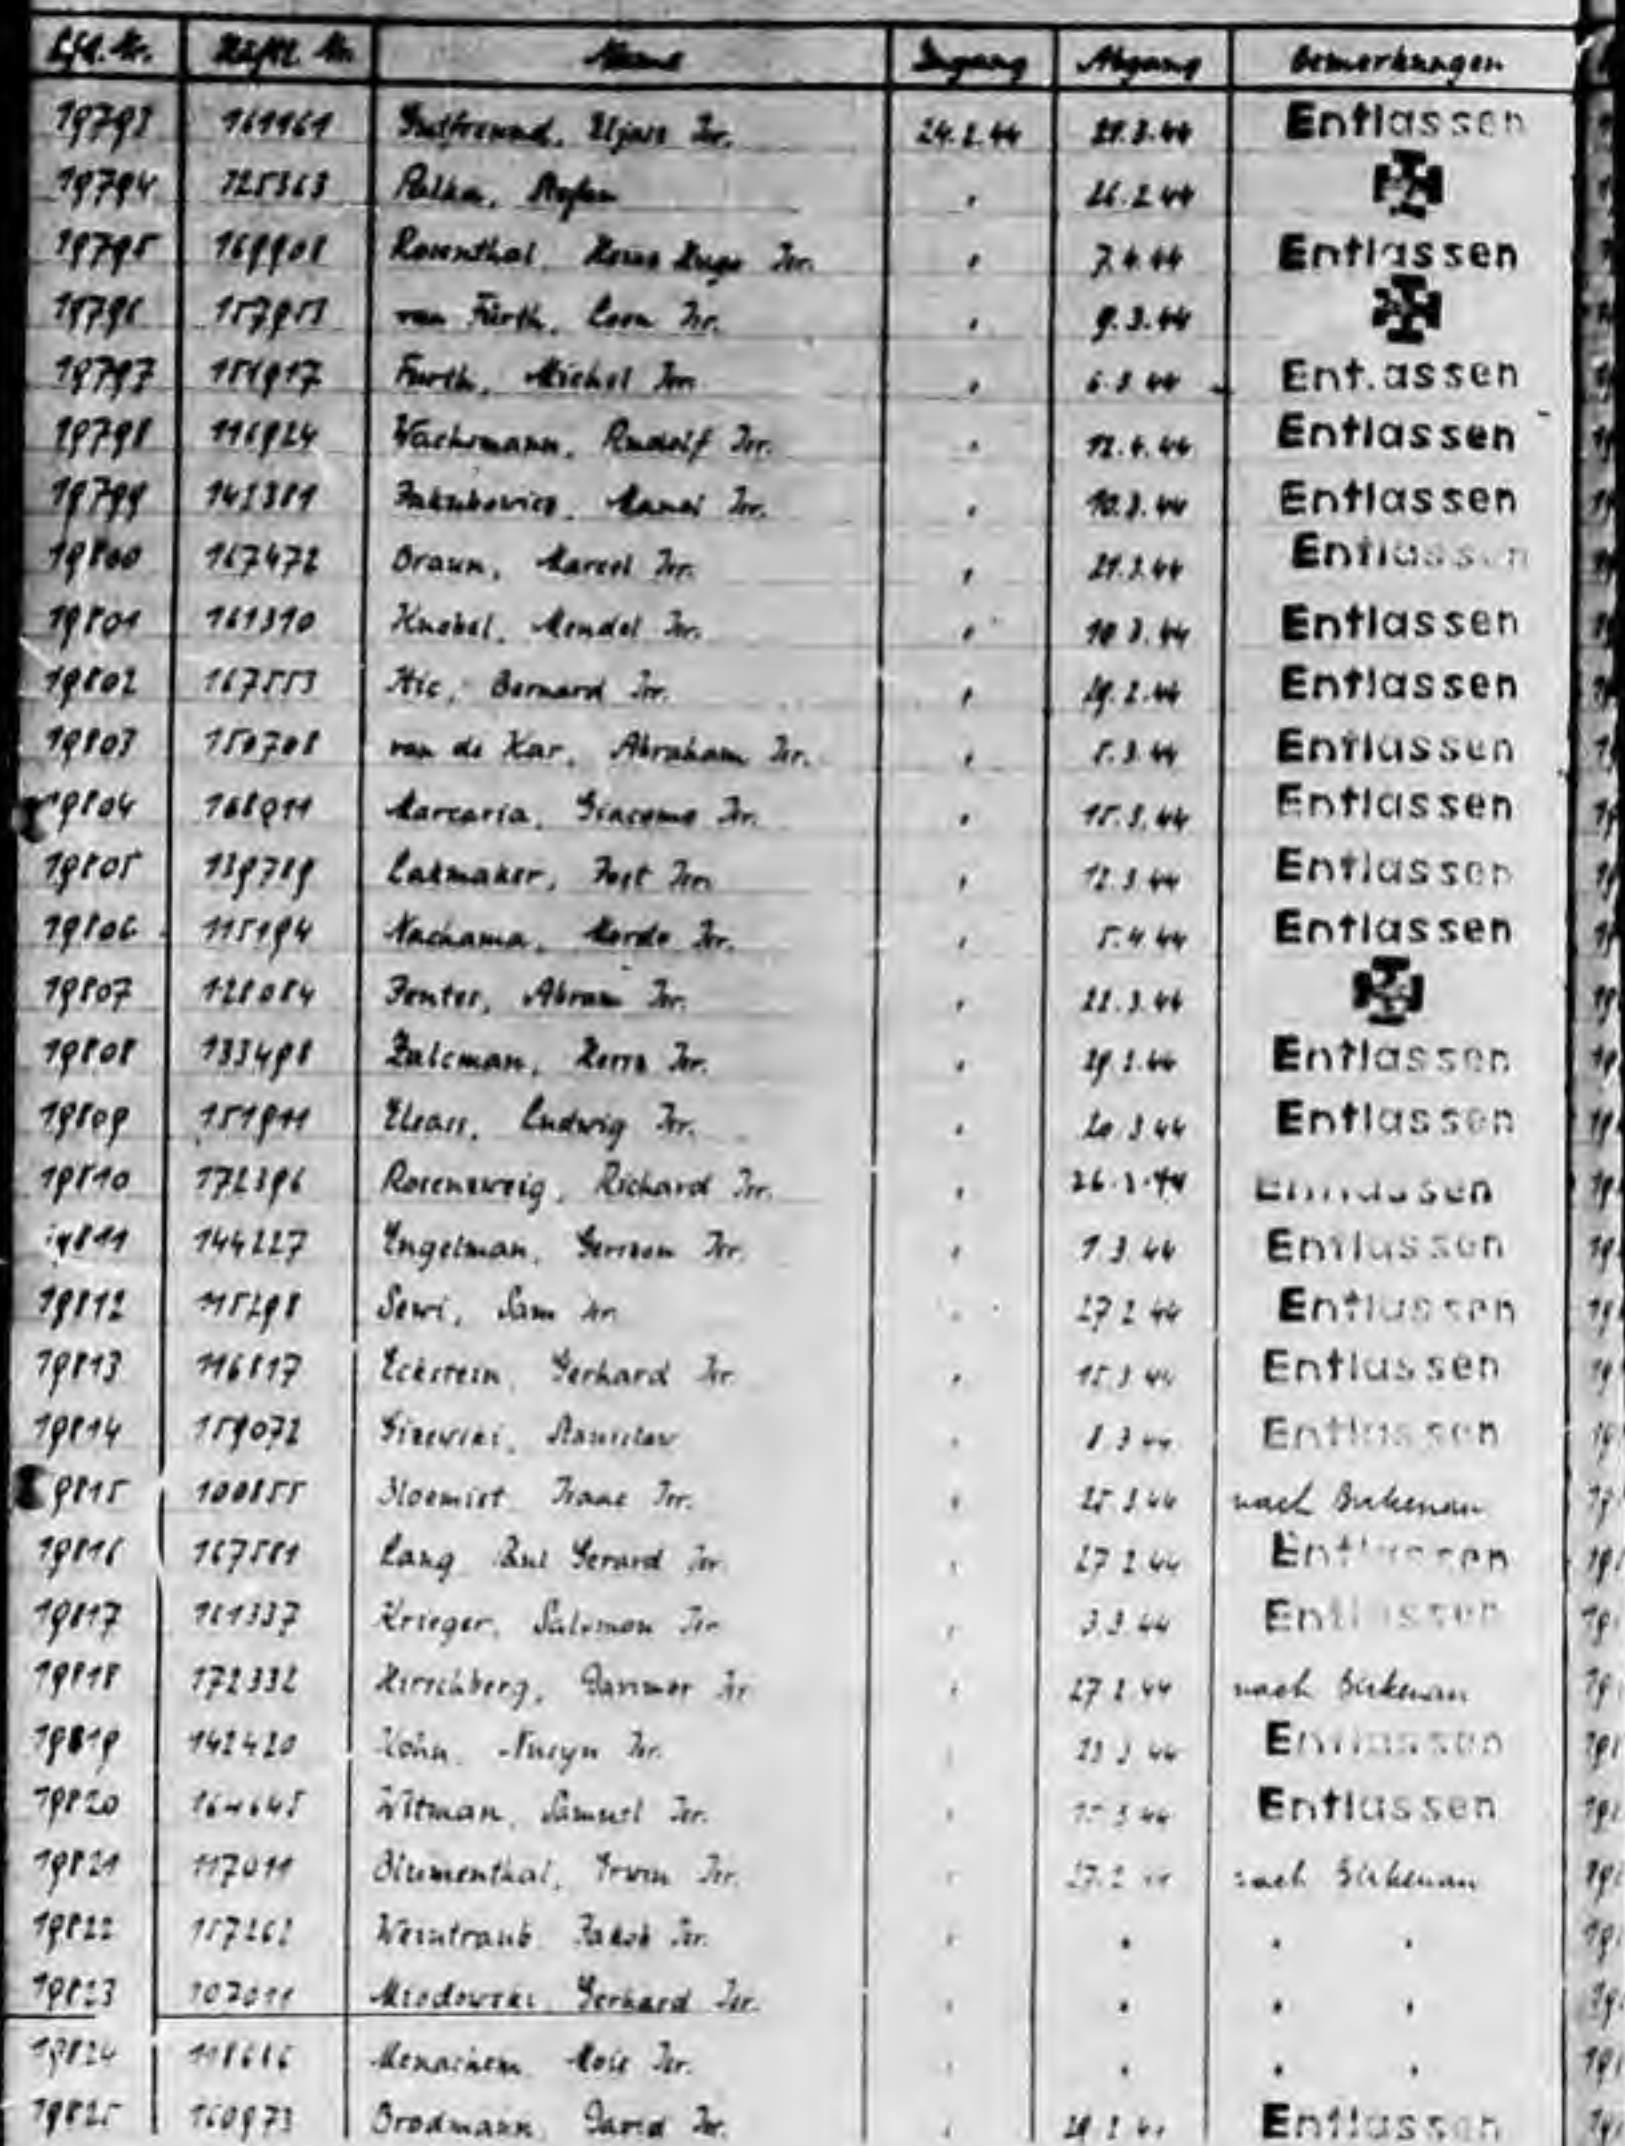 Lfd. Nr. Häftl. Nr. Name Zugang Abgang Bemerkungen
19793 161161 Gutfreund, Isr. 24.2.44 21.3.44 Entlassen
19794 125363 Palka, Stefan " 26.2.44
19795 169908 Rosenthal, Hans Hugo Isr. " 7.4.44 Entlassen
19796 157953 van Fürth, Leon Isr. " 9.3.44
19797 151917 Furth, Michel Isr. " 6.3.44 Entlassen
19798 116924 Wachsmann, Rudolf Isr. " 12.4.44 Entlassen
19799 142381 Jakubowicz, Isr. " 10.3.44 Entlassen
19800 167472 Braun, Marcel Isr. " 21.3.44 Entlassen
19801 161310 Knobel, Mendel Isr. " 10.3.44 Entlassen
19802 167553 Hic, Bernard Isr. " 29.2.44 Entlassen
19803 150708 van de Kar, Abraham Isr. " 5.3.44 Entlassen
19804 168011 Marcaria, Giacomo Isr. " 15.3.44 Entlassen
19805 139789 Lakmaker, Isr. " 12.3.44 Entlassen
19806 115194 Nachama, Mordo Isr. " 5.4.44 Entlassen
19807 128084 Fenter, Abram Isr. " 22.3.44
19808 133498 Zalcman, Isr. " 29.2.44 Entlassen
19809 151911 Elsass, Ludwig Isr. " 20.3.44 Entlassen
19810 172396 Rosenzweig, Richard Isr. " 26.3.44 Entlassen
19811 144227 Engelman, Gerrson Isr. " 1.3.44 Entlassen
19812 115298 Sewi, Sam Isr. " 27.2.44 Entlassen
19813 116817 Eckstein, Gerhard Isr. " 15.3.44 Entlassen
19814 159072 Gizewski, Stanislaw " 8.3.44 Entlassen
19815 100855 Isaac Isr. " 25.3.44 nach Birkenau
19816 167581 Lang Paul Gerard Isr. " 27.2.44 Entlassen
19817 161337 Krieger, Salomon Isr. " 3.3.44 Entlassen
19818 172332 Hirschberg, Isr. " 27.2.44 nach Birkenau
19819 142420 Kohn, Nusyn Isr. " 23.3.44 Entlassen
19820 164645 Witman, Samuel Isr. " 15.3.44 Entlassen
19821 117011 Blumenthal, Erwin Isr. " 27.2.44 nach Birkenau
19822 157262 Weintraub Jakob Isr. " " " "
19823 107011 Miodowski Gerhard Isr. " " " "
19824 118686 Menachem Isr. " " " "
19825 160973 Brodmann, David Isr. " 29.2.44 Entlassen